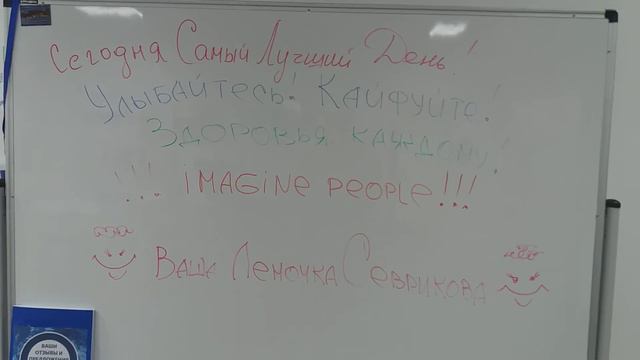 Сегодня Самый Лучший День!
Улыбайтесь! Кайфуйте!
Здоровья каждому!
!!! iMAGiNe PEOPLE!!!
Ваша Леночка Севрикова
ВАШИ
ОТЗЫВЫ И
ПРЕДЛОЖЕНИЯ